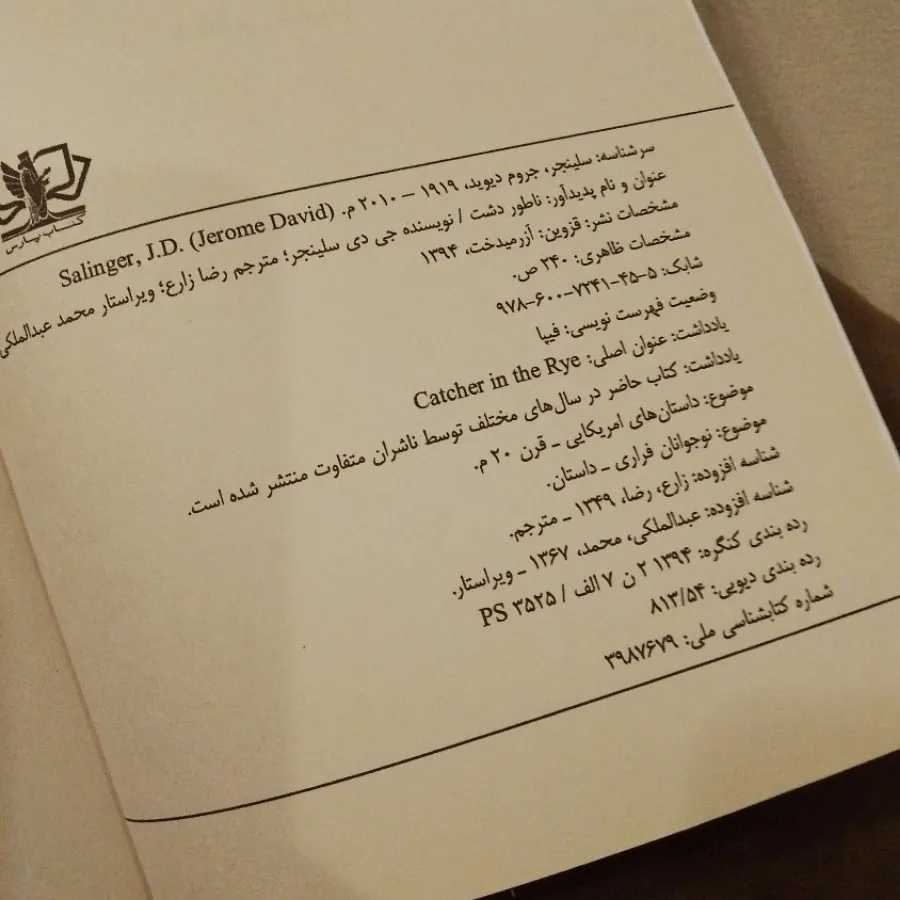 کتاب پارس
سرشناسه: سلینجر، جروم دیوید، ۱۹۱۹ – ۲۰۱۰ م. Salinger, J.D. (Jerome David)
عنوان و نام پدیدآور: ناطور دشت / نویسنده جی دی سلینجر؛ مترجم رضا زارع؛ ویراستار محمد عبدالملکی
مشخصات نشر: قزوین: آزرمیدخت، ۱۳۹۴
مشخصات ظاهری: ۲۴۰ ص.
شابک: ۵-۴۵-۷۲۴۱-۶۰۰-۹۷۸
وضعیت فهرست نویسی: فیپا
یادداشت: عنوان اصلی: Catcher in the Rye
یادداشت: کتاب حاضر در سال‌های مختلف توسط ناشران متفاوت منتشر شده است.
موضوع: داستان‌های امریکایی – قرن ۲۰ م.
موضوع: نوجوانان فراری – داستان.
شناسه افزوده: زارع، رضا، ۱۳۴۹ – مترجم.
شناسه افزوده: عبدالملکی، محمد، ۱۳۶۷ – ویراستار.
رده بندی کنگره: ۱۳۹۴ ۲ ن ۷ الف / PS ۳۵۲۵
رده بندی دیویی: ۸۱۳/۵۴
شماره کتابشناسی ملی: ۳۹۸۷۶۷۹